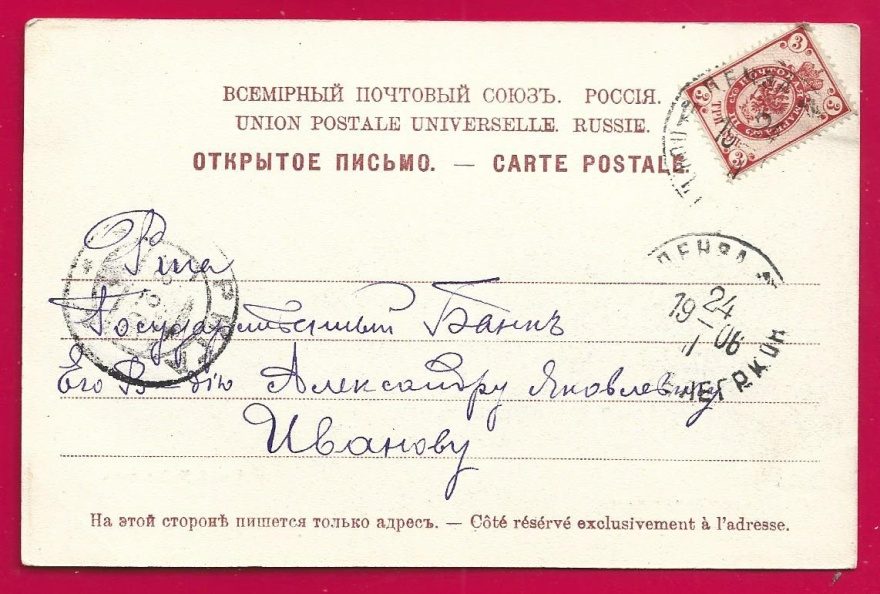 ВСЕМІРНЫЙ ПОЧТОВЫЙ СОЮЗЪ. РОССІЯ.
UNION POSTALE UNIVERSELLE. RUSSIE.
ОТКРЫТОЕ ПИСЬМО. — CARTE POSTALE
3
3
3
3
ПЕНЗА
24
19 — 06
1
РИГА
Рига
Государственный Банкъ
Его В-дію Александру Яковлевичу
Иванову
На этой сторонѣ пишется только адресъ. — Côté résérvé exclusivement à l'adresse.